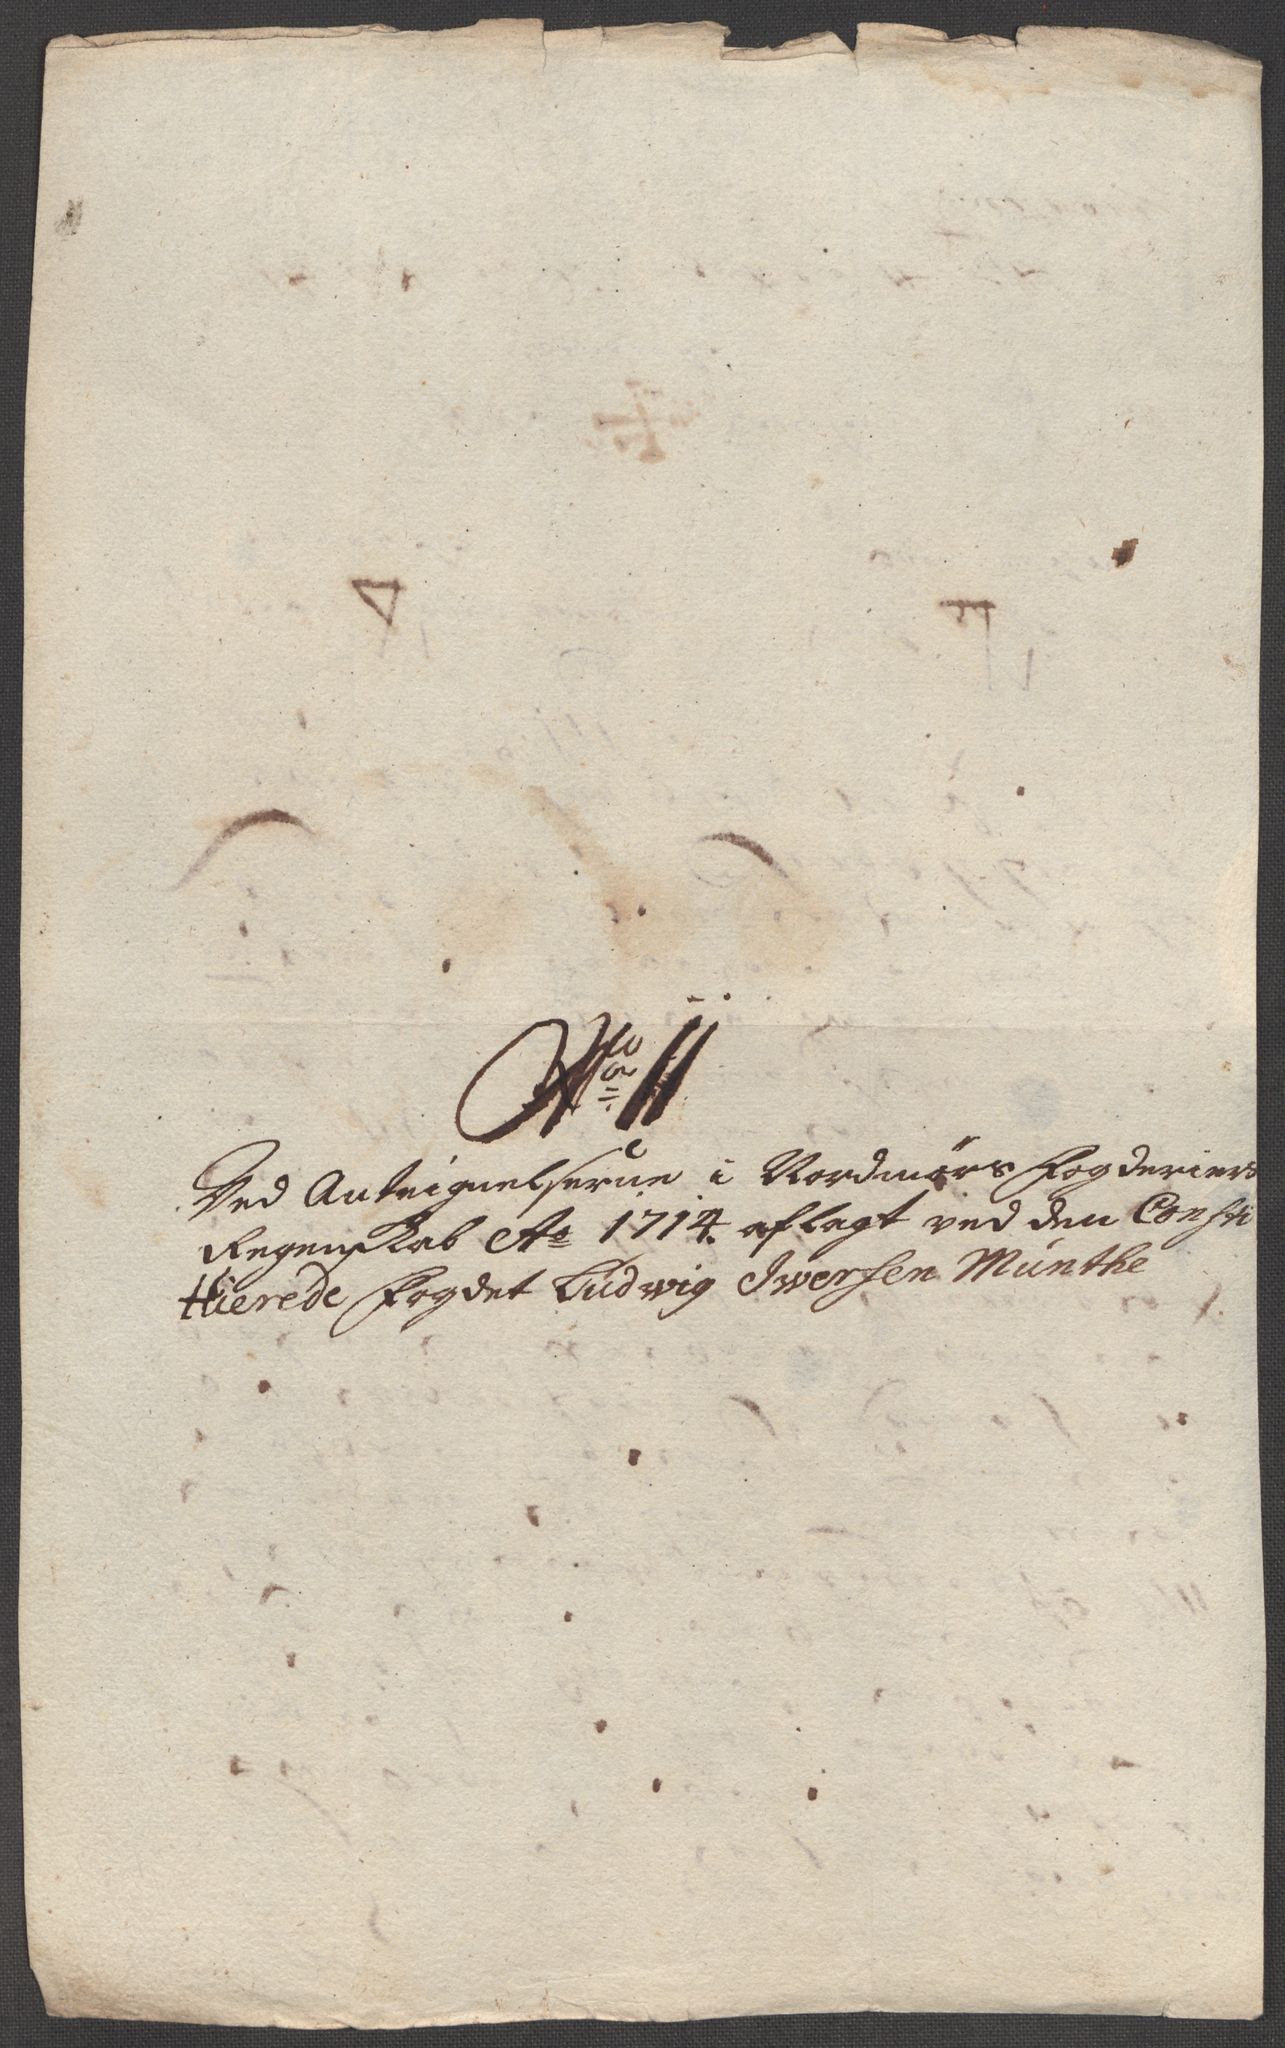 No 11
Ved Anteignelserne i Nordmørs Fogderiers
Regenskab Ao 1714. aflagt ved den Consti
tuerede Fogdet Ludwig Iwersen Munthe